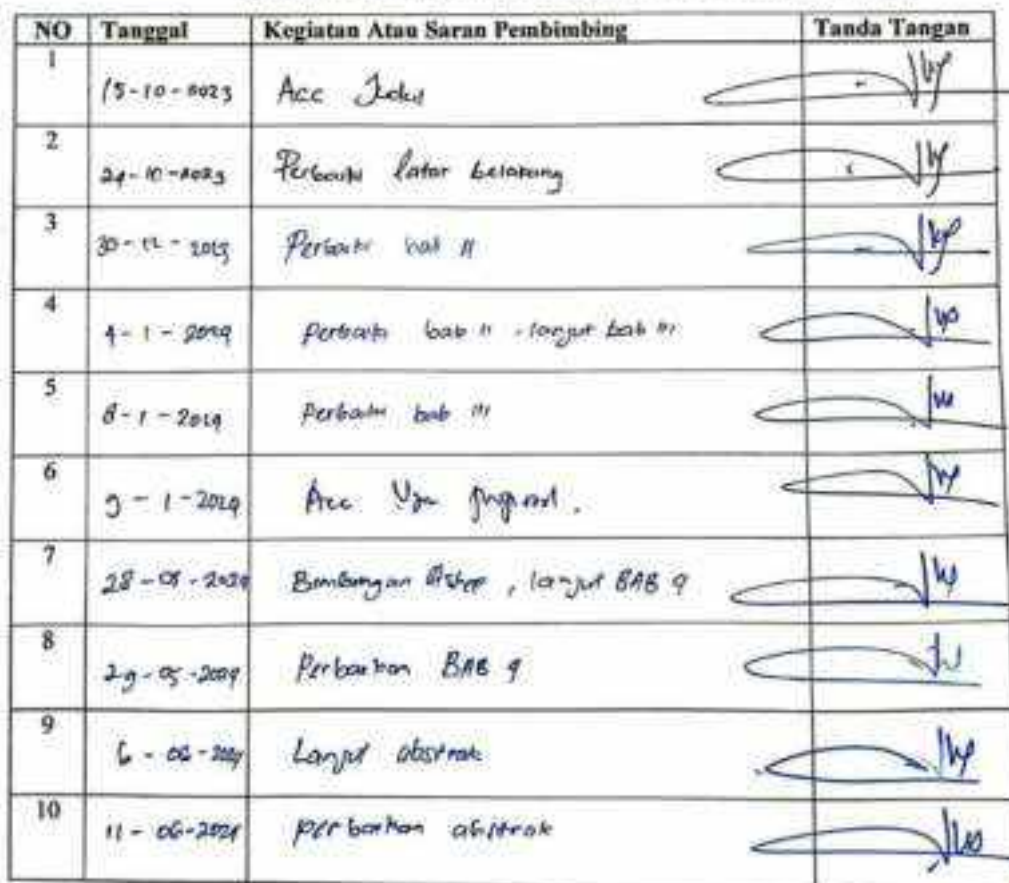 NO Tanggal Kegiatan Atau Saran Pembimbing Tanda Tangan
1 15-10-2023 Acc Judul
2 24-10-2023 Perbaiki latar belakang
3 30-12-2023 Perbaiki bab II
4 4-1-2024 Perbaiki bab II - lanjut bab III
5 8-1-2024 Perbaiki bab III
6 9-1-2024 Acc Ujian proposal.
7 28-05-2024 Bimbingan , lanjut BAB 4
8 29-05-2024 Perbaikan BAB 4
9 6-06-2024 Lanjut abstrak
10 11-06-2024 perbaikan abstrak